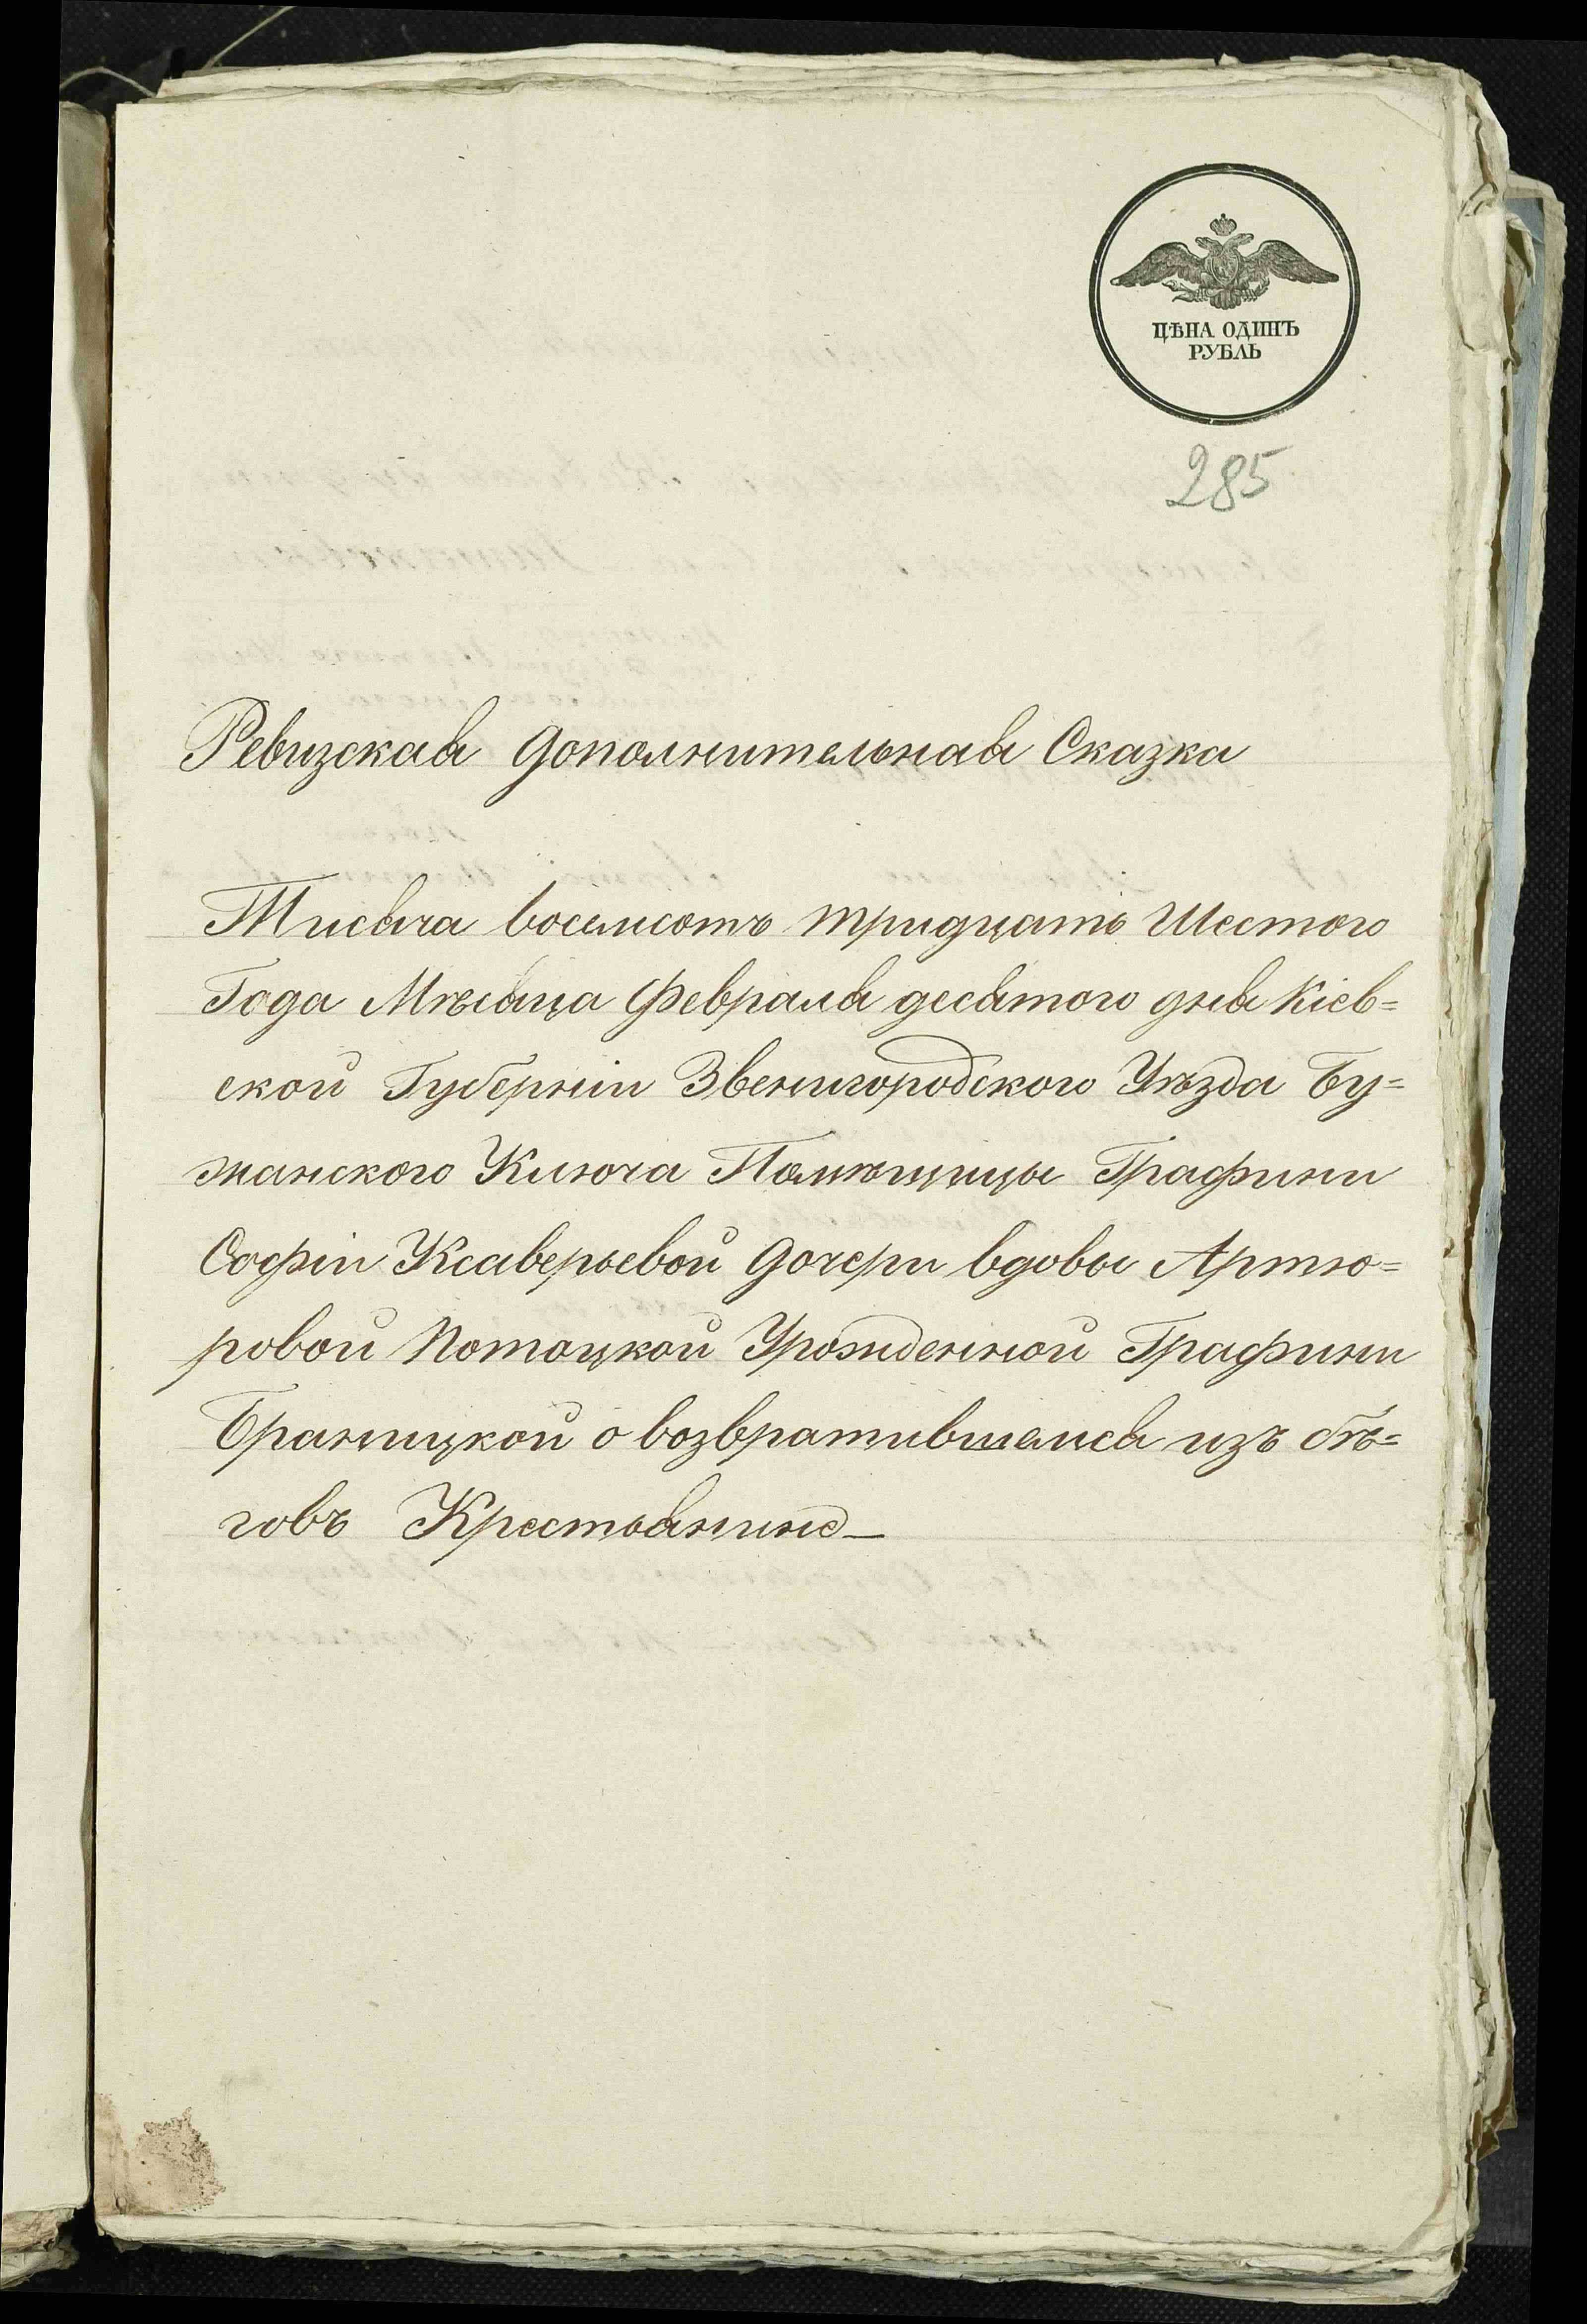 ЦѢНА ОДИНЪ
РУБЛЬ
285
Ревизская дополнительная Сказка
Тисяча восемсотъ тридцать Шестого
Года Мѣсяца Февраля десятого дня Кіев=
ской Губерніи Звенигородского Уѣзда Бу=
жанского Ключа Помѣщицы Графини
Софіи Ксаверьевой дочери вдовы Артю=
ровой Потоцкой Урожденной Графини
Браницкой о возвратившемся изъ бѣ=
говъ Крестьянине